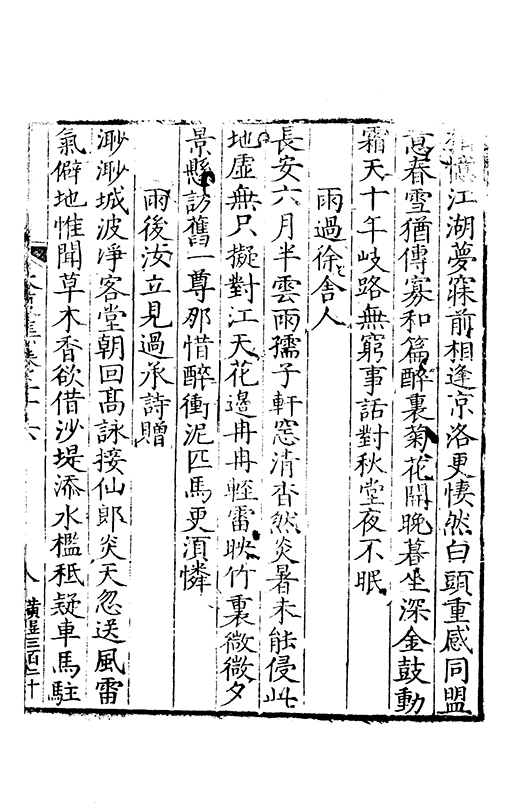 憶江湖夢寐前相逢京洛更悽然白頭重感同盟
意春雪猶傳寡和篇醉裏菊花開晚暮坐深金鼓動
霜天十年岐路無窮事話對秋堂夜不眠
雨過徐舍人
長安六月半雲雨孺子軒窓清杳然炎暑未能侵此
地虛無只擬對江天花邊冉冉輕雷映竹裏微微夕
景懸訪舊一尊那惜醉衝泥匹馬更須憐
雨後汝立見過承詩贈
渺渺城波淨客堂朝回髙詠接仙郎炎天忽送風雷
氣僻地惟聞草木香欲借沙堤添水檻秪疑車馬駐
十六
八
黃
三百二十